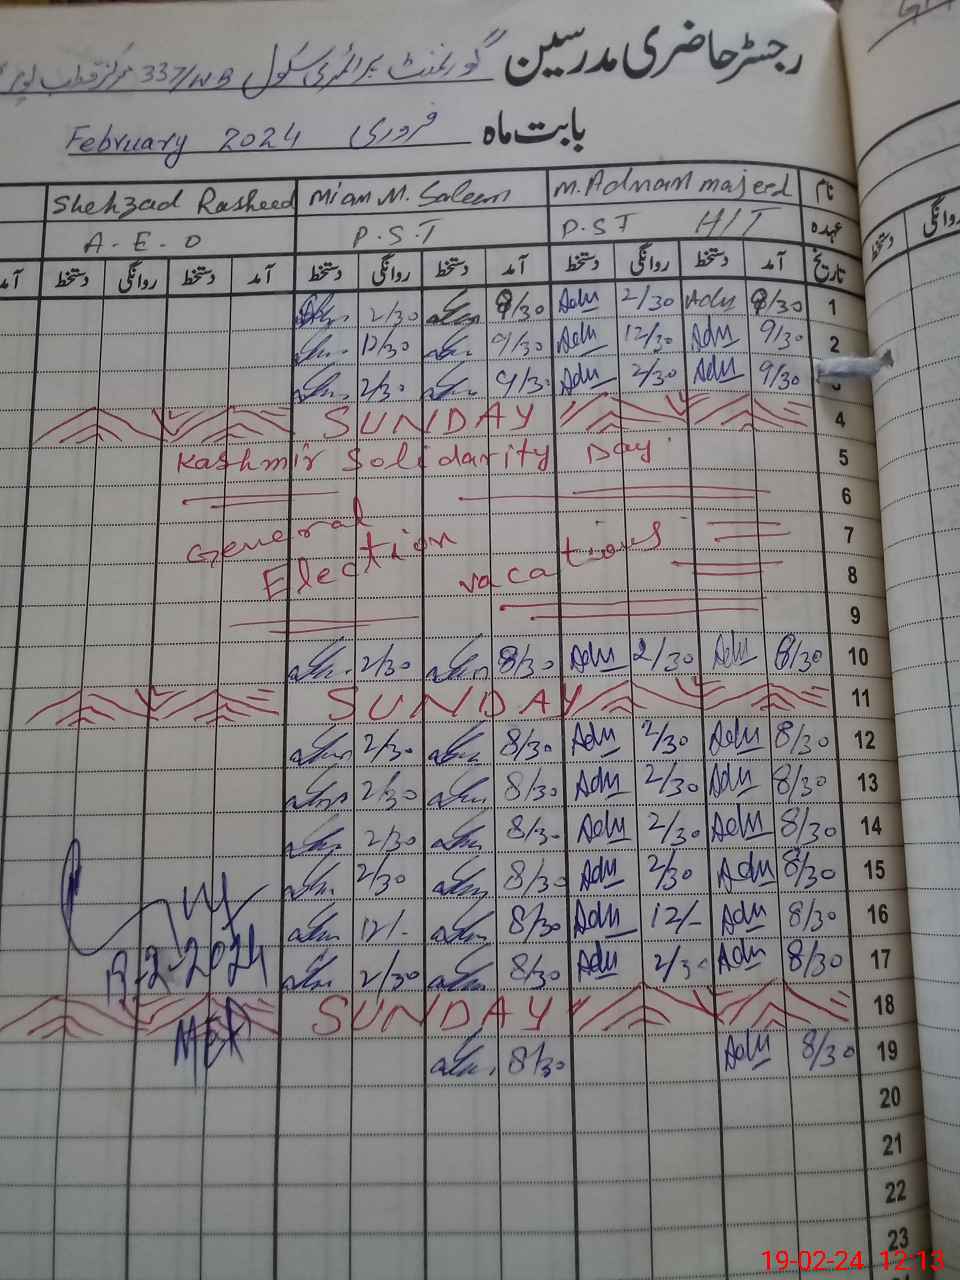 رجسٹر حاضری مدرسین گورنمنٹ پرائمری سکول 337/WB مرکز قطب پور
بابت ماہ فروری February 2024
نام M. Adnan majeed Mian M. Saleem Shehzad Rasheed
عہدہ P.S.T H/T P.S.T A-E-O
تاریخ آمد دستخط روانگی دستخط آمد دستخط روانگی دستخط آمد دستخط روانگی دستخط آمد
1 8/30 Adn 2/30 Adn 9/30 2/30
2 9/30 Adn 12/30 Adn 9/30 12/30
3 9/30 Adn 2/30 Adn 9/30 2/30
4 SUNDAY
5 Kashmir Solidarity Day
6
7 General
8 Election vacations
9
10 8/30 Adn 2/30 Adn 8/30 2/30
11 SUNDAY
12 8/30 Adn 2/30 Adn 8/30 2/30
13 8/30 Adn 2/30 Adn 8/30 2/30
14 8/30 Adn 2/30 Adn 8/30 2/30
15 8/30 Adn 2/30 Adn 8/30 2/30
16 8/30 Adn 12/- Adn 8/30 12/-
17 8/30 Adn 2/30 Adn 8/30 2/30
-2-2024
18 SUNDAY
MEA
19 8/30 Adn 8/30
20
21
22
23
روانگی
دستخط
19-02-24 12:13